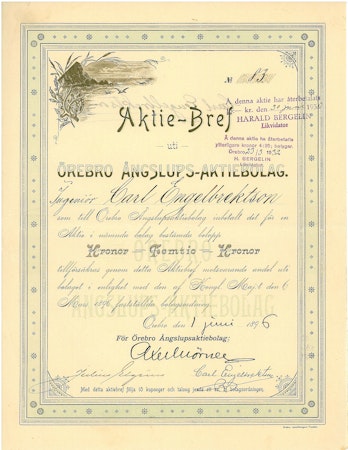 № 83
Aktie-Bref
uti
ÖREBRO ÅNGSLUPS-AKTIEBOLAG.
Å denna aktie har återbetalats
kr. den 1931
HARALD BERGELIN
Likvidator
Å denna aktie har återbetalats
ytterligare kronor
Örebro 1932
H. BERGELIN
Ingeniör Carl Engelbrektson
som till Örebro Ångslupsaktiebolag inbetalt det för en
Aktie i nämnde bolag bestämda belopp
Kronor Femtio Kronor
tillförsäkras genom detta Aktiebref motsvarande andel uti
bolaget i enlighet med den af Kongl. Maj:t den 6
Mars 1896 fastställda bolagsordning.
ÖREBRO
ÅNGSLUPS-AKTIEBOLAG
Örebro den 1 juni 1896
För Örebro Ångslupsaktiebolag:
Axel Mörner
Carl Engelbrektson
Med detta aktiebref följa 15 kuponger och talong jemte ett ex. af bolagsordningen.